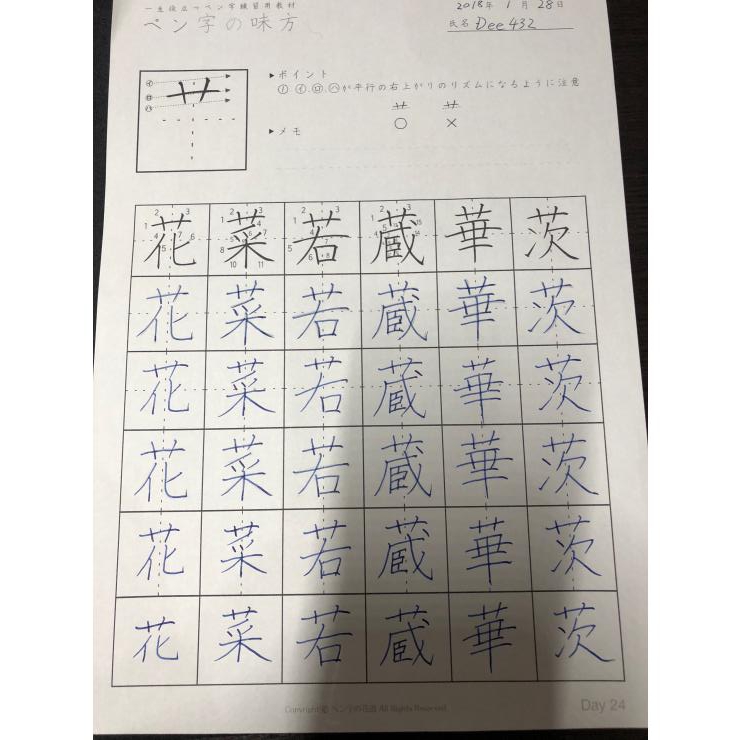 一生役立つペン字練習用教材
2018年 1月 28日
ペン字の味方
氏名 Dee432
▶ポイント
㋑ ㋺ ㋩が平行の右上がりのリズムになるように注意
○ ×
▶メモ
花 菜 若 蔵 華 茨
花 菜 若 蔵 華 茨
花 菜 若 蔵 華 茨
花 菜 若 蔵 華 茨
花 菜 若 蔵 華 茨
花 菜 若 蔵 華 茨
All Rights Reserved.
Day 24